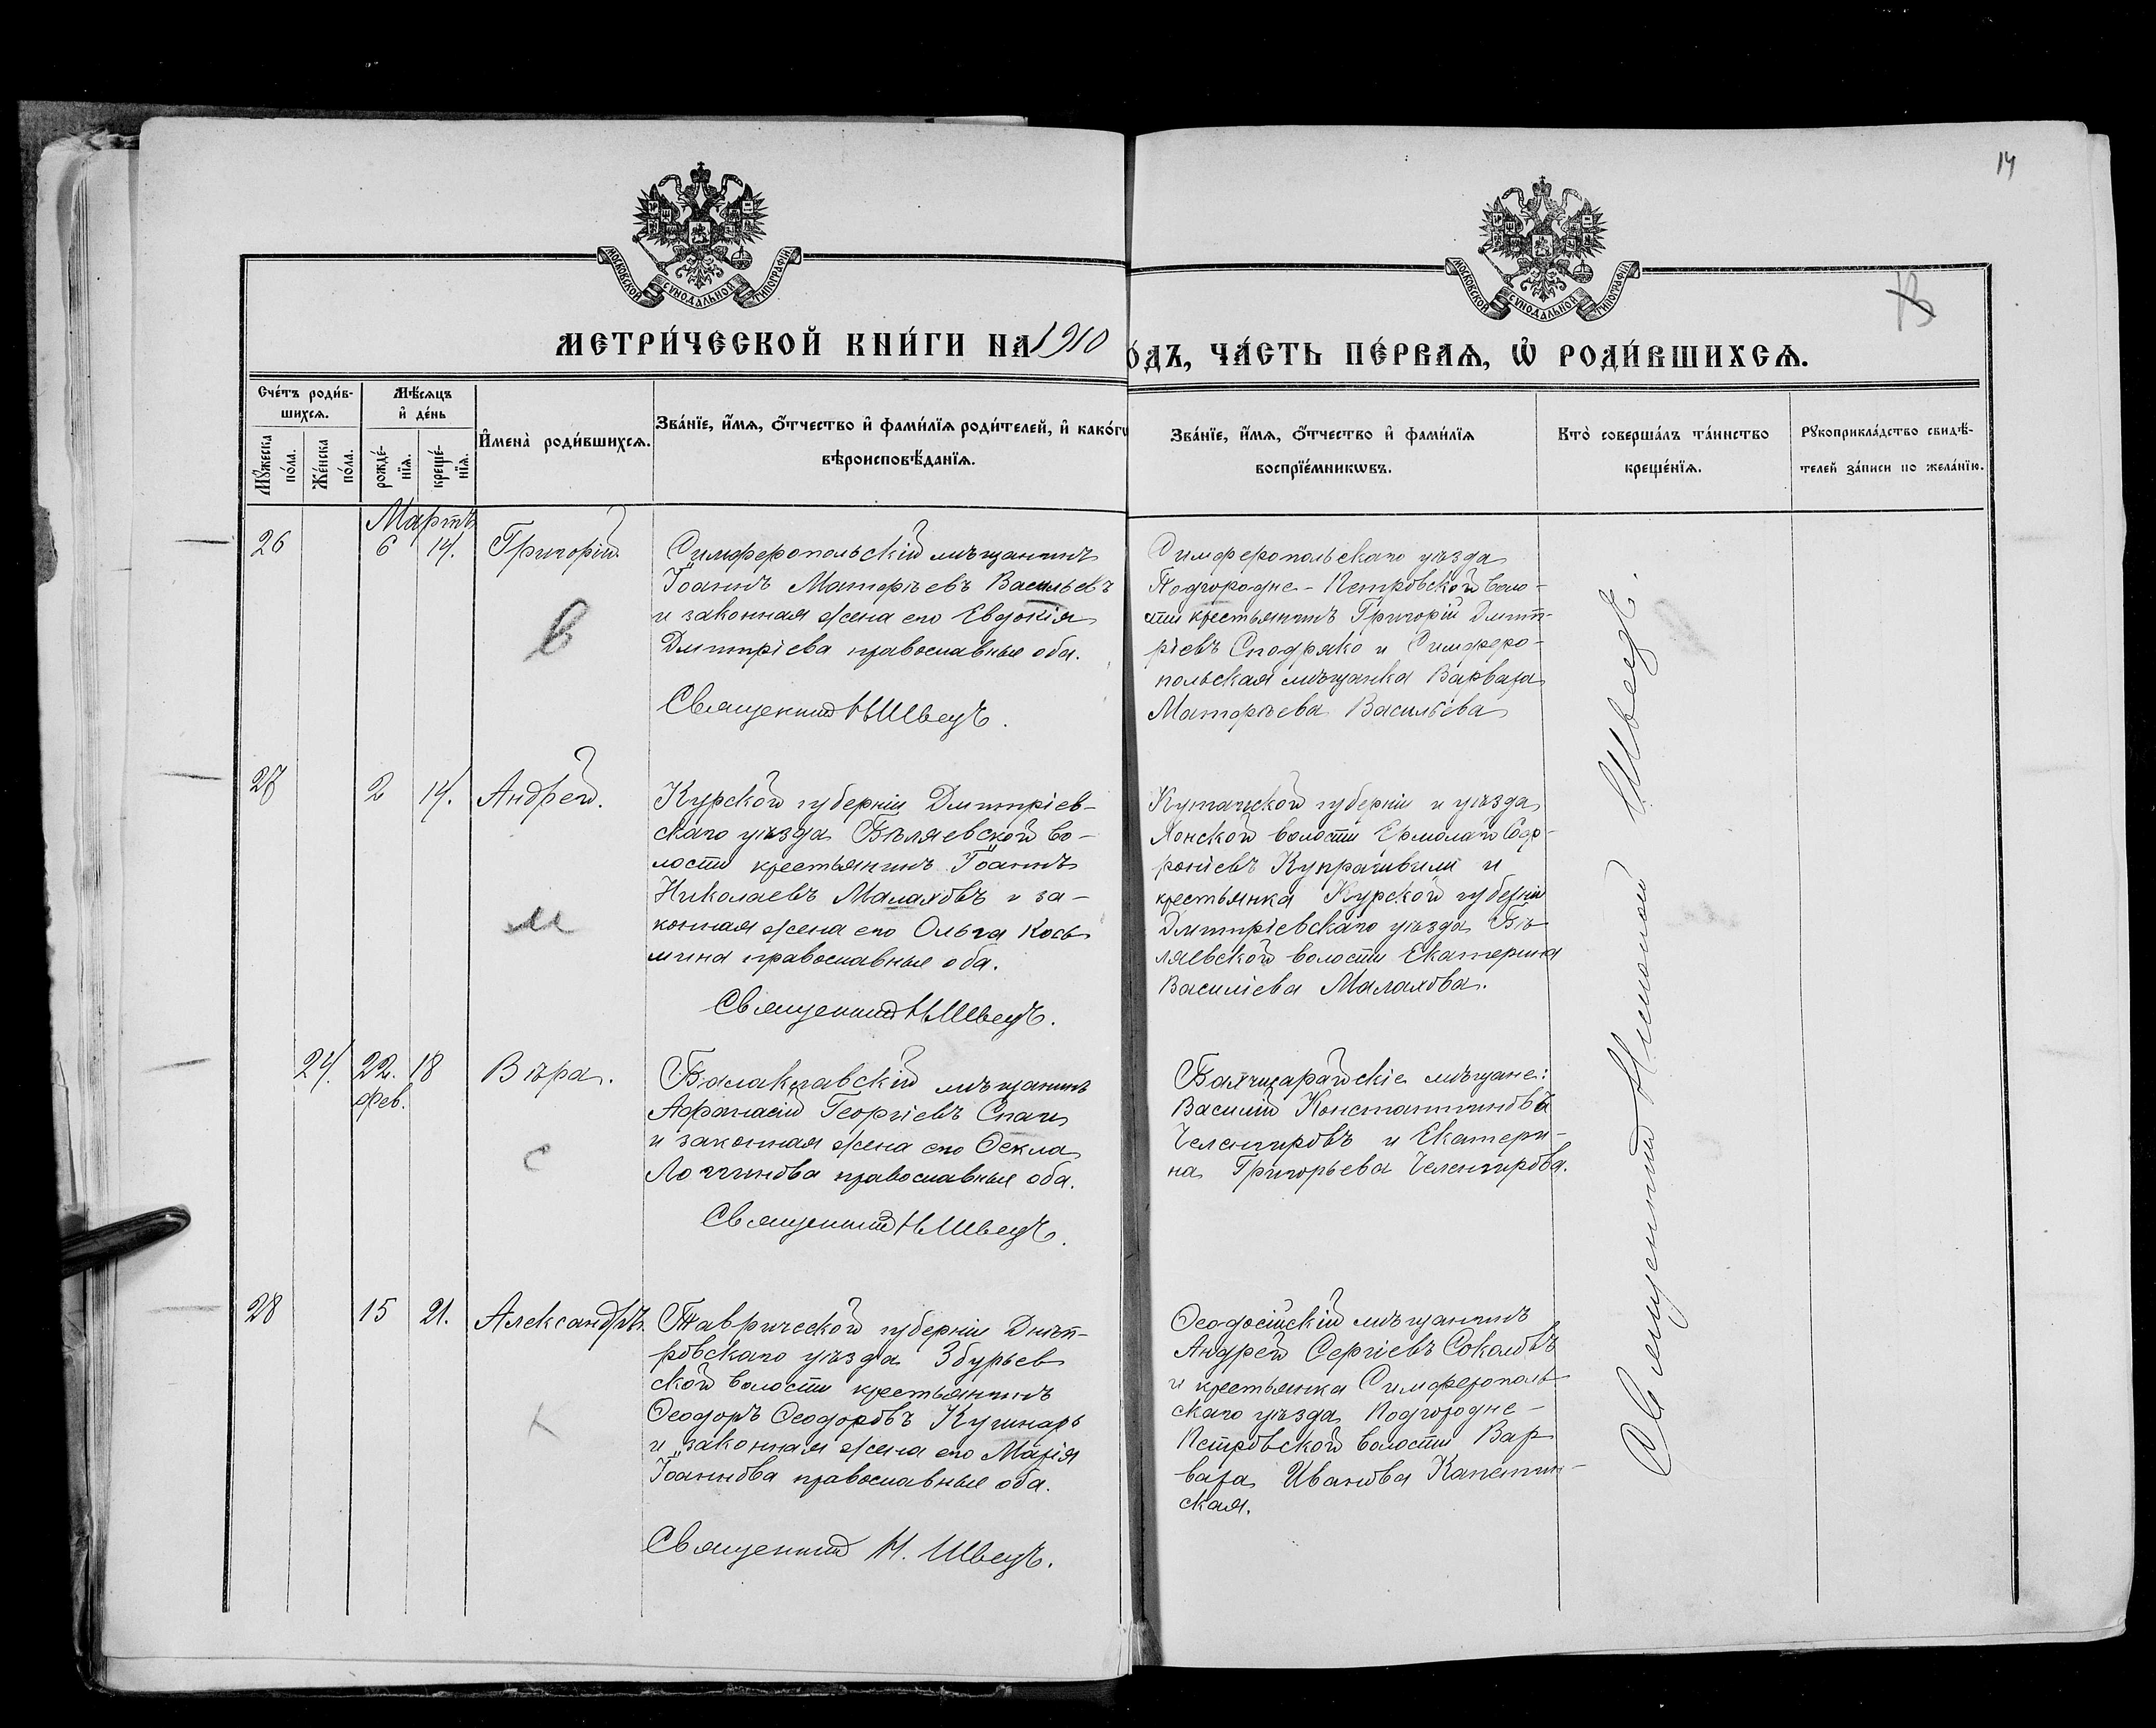 14
13
МОСКОВСКОЙ СѴНОДАЛЬНОЙ ТИПОГРАФІИ
МОСКОВСКОЙ СѴНОДАЛЬНОЙ ТИПОГРАФІИ
МЕТРИ́ЧЕСКОЙ КНИ́ГИ НА 1910
О́ДЪ, ЧА́СТЬ ПЕ́РВАѦ, Ѡ҆ РОДИ́ВШИХСѦ.
Сче́тъ роди́в-
шихсѧ.
Мꙋ́жеска
по́ла.
Же́нска
по́ла.
Мѣ́сѧцъ
и҆ де́нь
рожде́-
нїѧ.
креще́-
нїѧ.
И҆мена̀ роди́вшихсѧ.
Зва́нїе, и҆́мѧ, ѻ҆́тчество и҆ фами́лїѧ роди́телей, и҆ како́гѡ
вѣроисповѣ́данїѧ.
Зва́нїе, и҆́мѧ, ѻ҆́тчество и҆ фами́лїѧ
воспрїе́мникѡвъ.
Кто̀ соверша́лъ та́инство
креще́нїѧ.
Рꙋкоприкла́дство свидѣ́-
телей за́писи по жела́нїю.
Мартъ
26 6 14. Григорій
Симферопольскій мѣщанинъ
Іоаннъ Матѳѣевъ Васильевъ
и законная жена его Евдокія
Дмитріева православные оба.
Священникъ Н Швецъ.
в
Симферопольскаго уѣзда
Подгородне-Петровской воло-
сти крестьянинъ Григорій Дмит-
ріевъ Сподряко и Симферо-
польская мѣщанка Варвара
Матѳѣева Васильева
27 2 14. Андрей.
Курской губерніи Дмитріев-
скаго уѣзда Бѣляевской во-
лости крестьянинъ Іоаннъ
Николаевъ Малаховъ и за-
конная жена его Ольга Кось
мина православные оба.
Священникъ Н Швецъ.
м
Кутаиской губерніи и уѣзда
Хонской волости Ермолай Соф-
роніевъ Купрашвили и
крестьянка Курской губерніи
Дмитріевскаго уѣзда Бѣ-
ляевской волости Екатерина
Василіева Малахова.
24. 22. 18 Вѣра.
фев.
Балаклавскій мѣщанинъ
Афанасій Георгіевъ Спаи
и законная жена его Ѳекла
Логгинова православные оба.
Священникъ Н Швецъ.
с
Бахчисарайскіе мѣщане:
Василій Константиновъ
Челенгировъ и Екатери-
на Григорьева Челенгирова.
28 15 21. Александръ.
Таврической губерніи Днѣп-
ровскаго уѣзда Збурьев
ской волости крестьянинъ
Ѳеодоръ Ѳеодоровъ Кушнарь
и законная жена его Марія
Іоаннова православные оба.
Священникъ Н. Швецъ.
к
Ѳеодосійскій мѣщанинъ
Андрей Сергіевъ Соколовъ
и крестьянка Симферополь
скаго уѣзда Подгородне-
Петровской волости Вар
вара Иванова Капетин-
ская.
Священникъ Николай Швецъ.